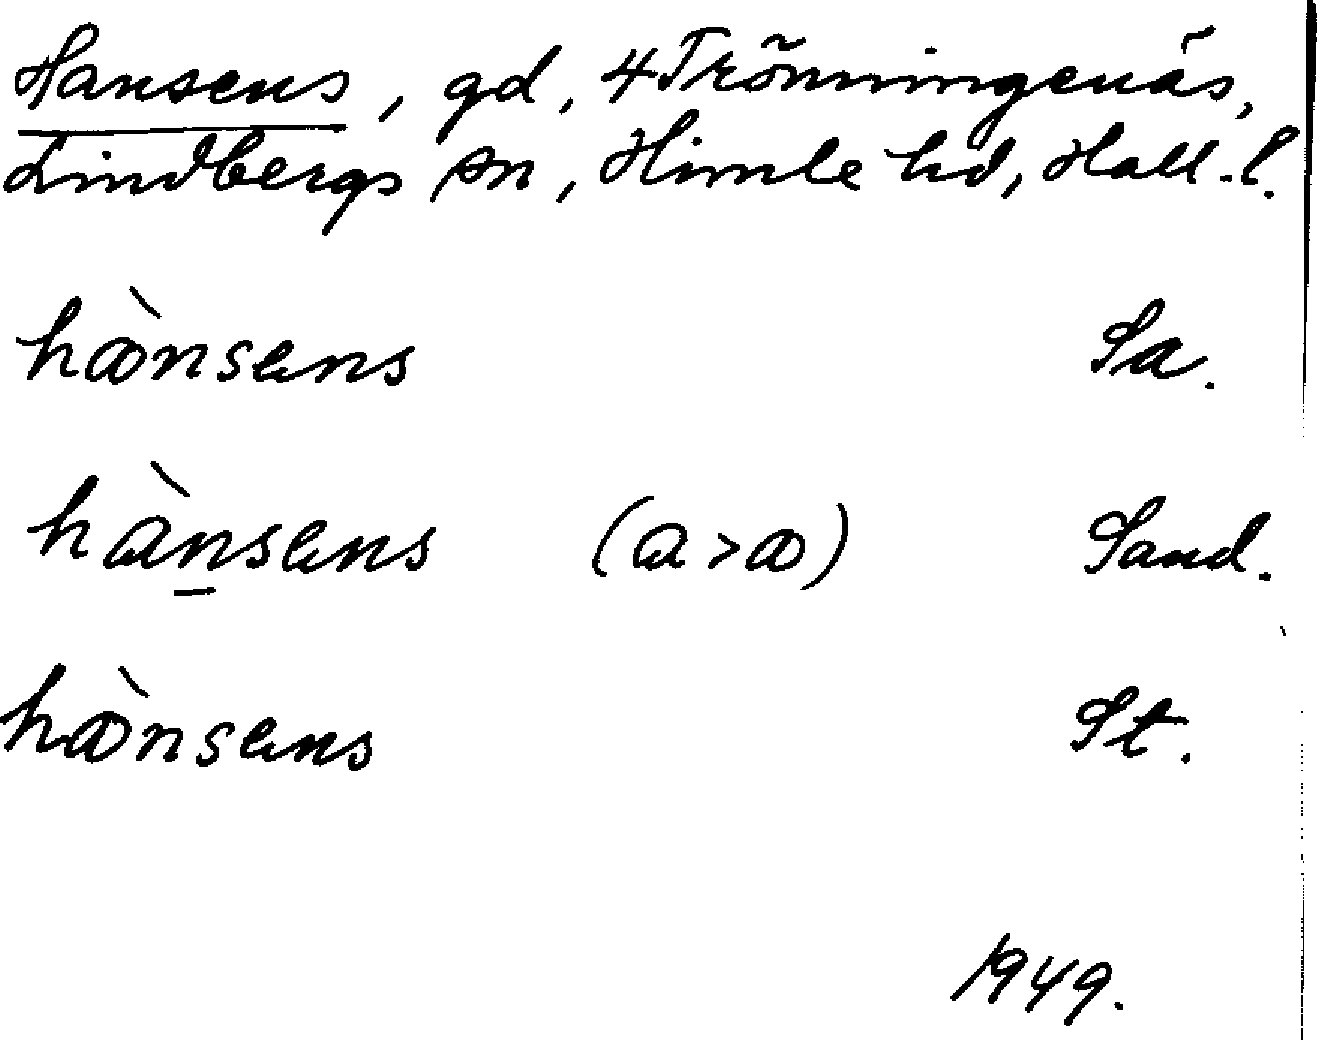 Hansens, gd, 4 Trönningenäs,
Lindbergs sn, Himle hd, Hall. l.
hànsens Sa.
hàn̲sens (a > a) Sand.
hànsens St.
1949.